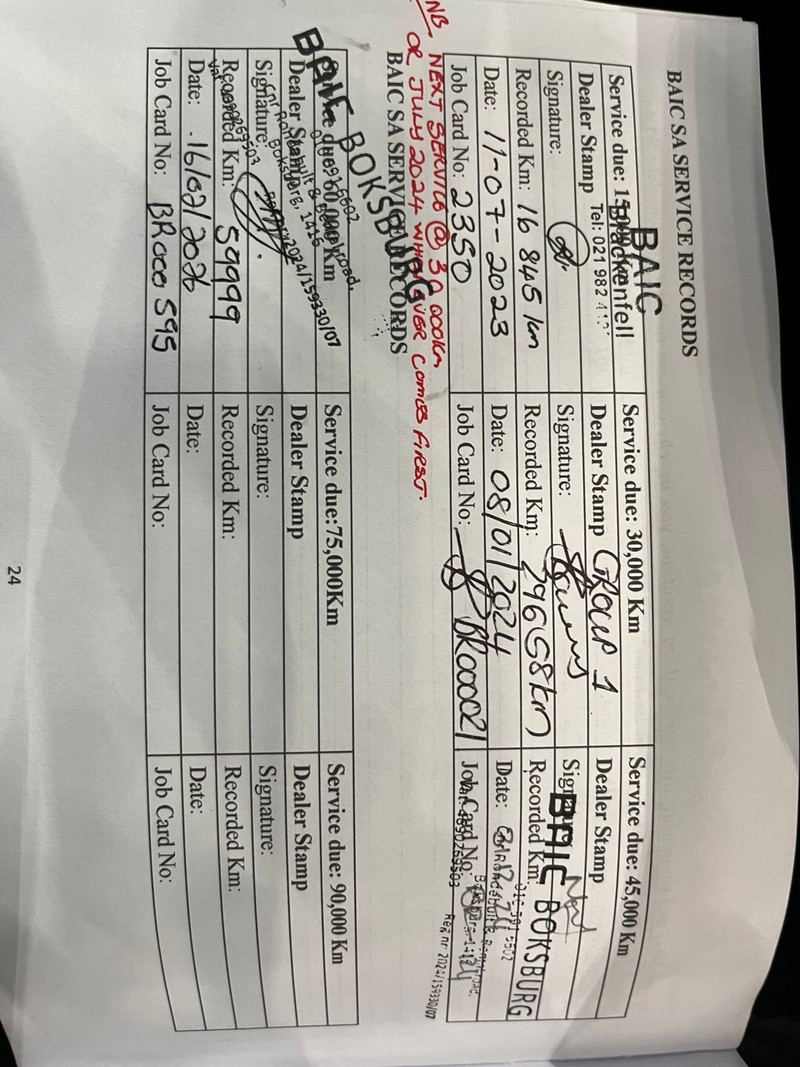 BAIC SA SERVICE RECORDS
Service due: 15,000
BAIC
Brackenfell
Dealer Stamp
Tel: 021 982
Signature:
Recorded Km: 16 845 km
Date: 11-07-2023
Job Card No: 2350
Service due: 30,000 Km
Dealer Stamp GROUP 1
Signature:
Recorded Km: 29658km
Date: 08/01/2024
Job Card No: BR000021
Service due: 45,000 Km
Dealer Stamp
Signature:
BAIC BOKSBURG
Recorded Km:
Date:
Job Card No:
Reg nr 2024/159330/07
NB. NEXT SERVICE @ 30 000km
OR JULY 2024 WHICHEVER COMES FIRST.
BAIC SA SERVICE RECORDS
BAIC BOKSBURG
Service due: 60,000 Km
Dealer Stamp
Signature:
Boksburg, 1415
2024/159330/07
Recorded Km: 59999
Date: 16/02/2026
Job Card No: BR000 595
Service due:75,000Km
Dealer Stamp
Signature:
Recorded Km:
Date:
Job Card No:
Service due: 90,000 Km
Dealer Stamp
Signature:
Recorded Km:
Date:
Job Card No:
24